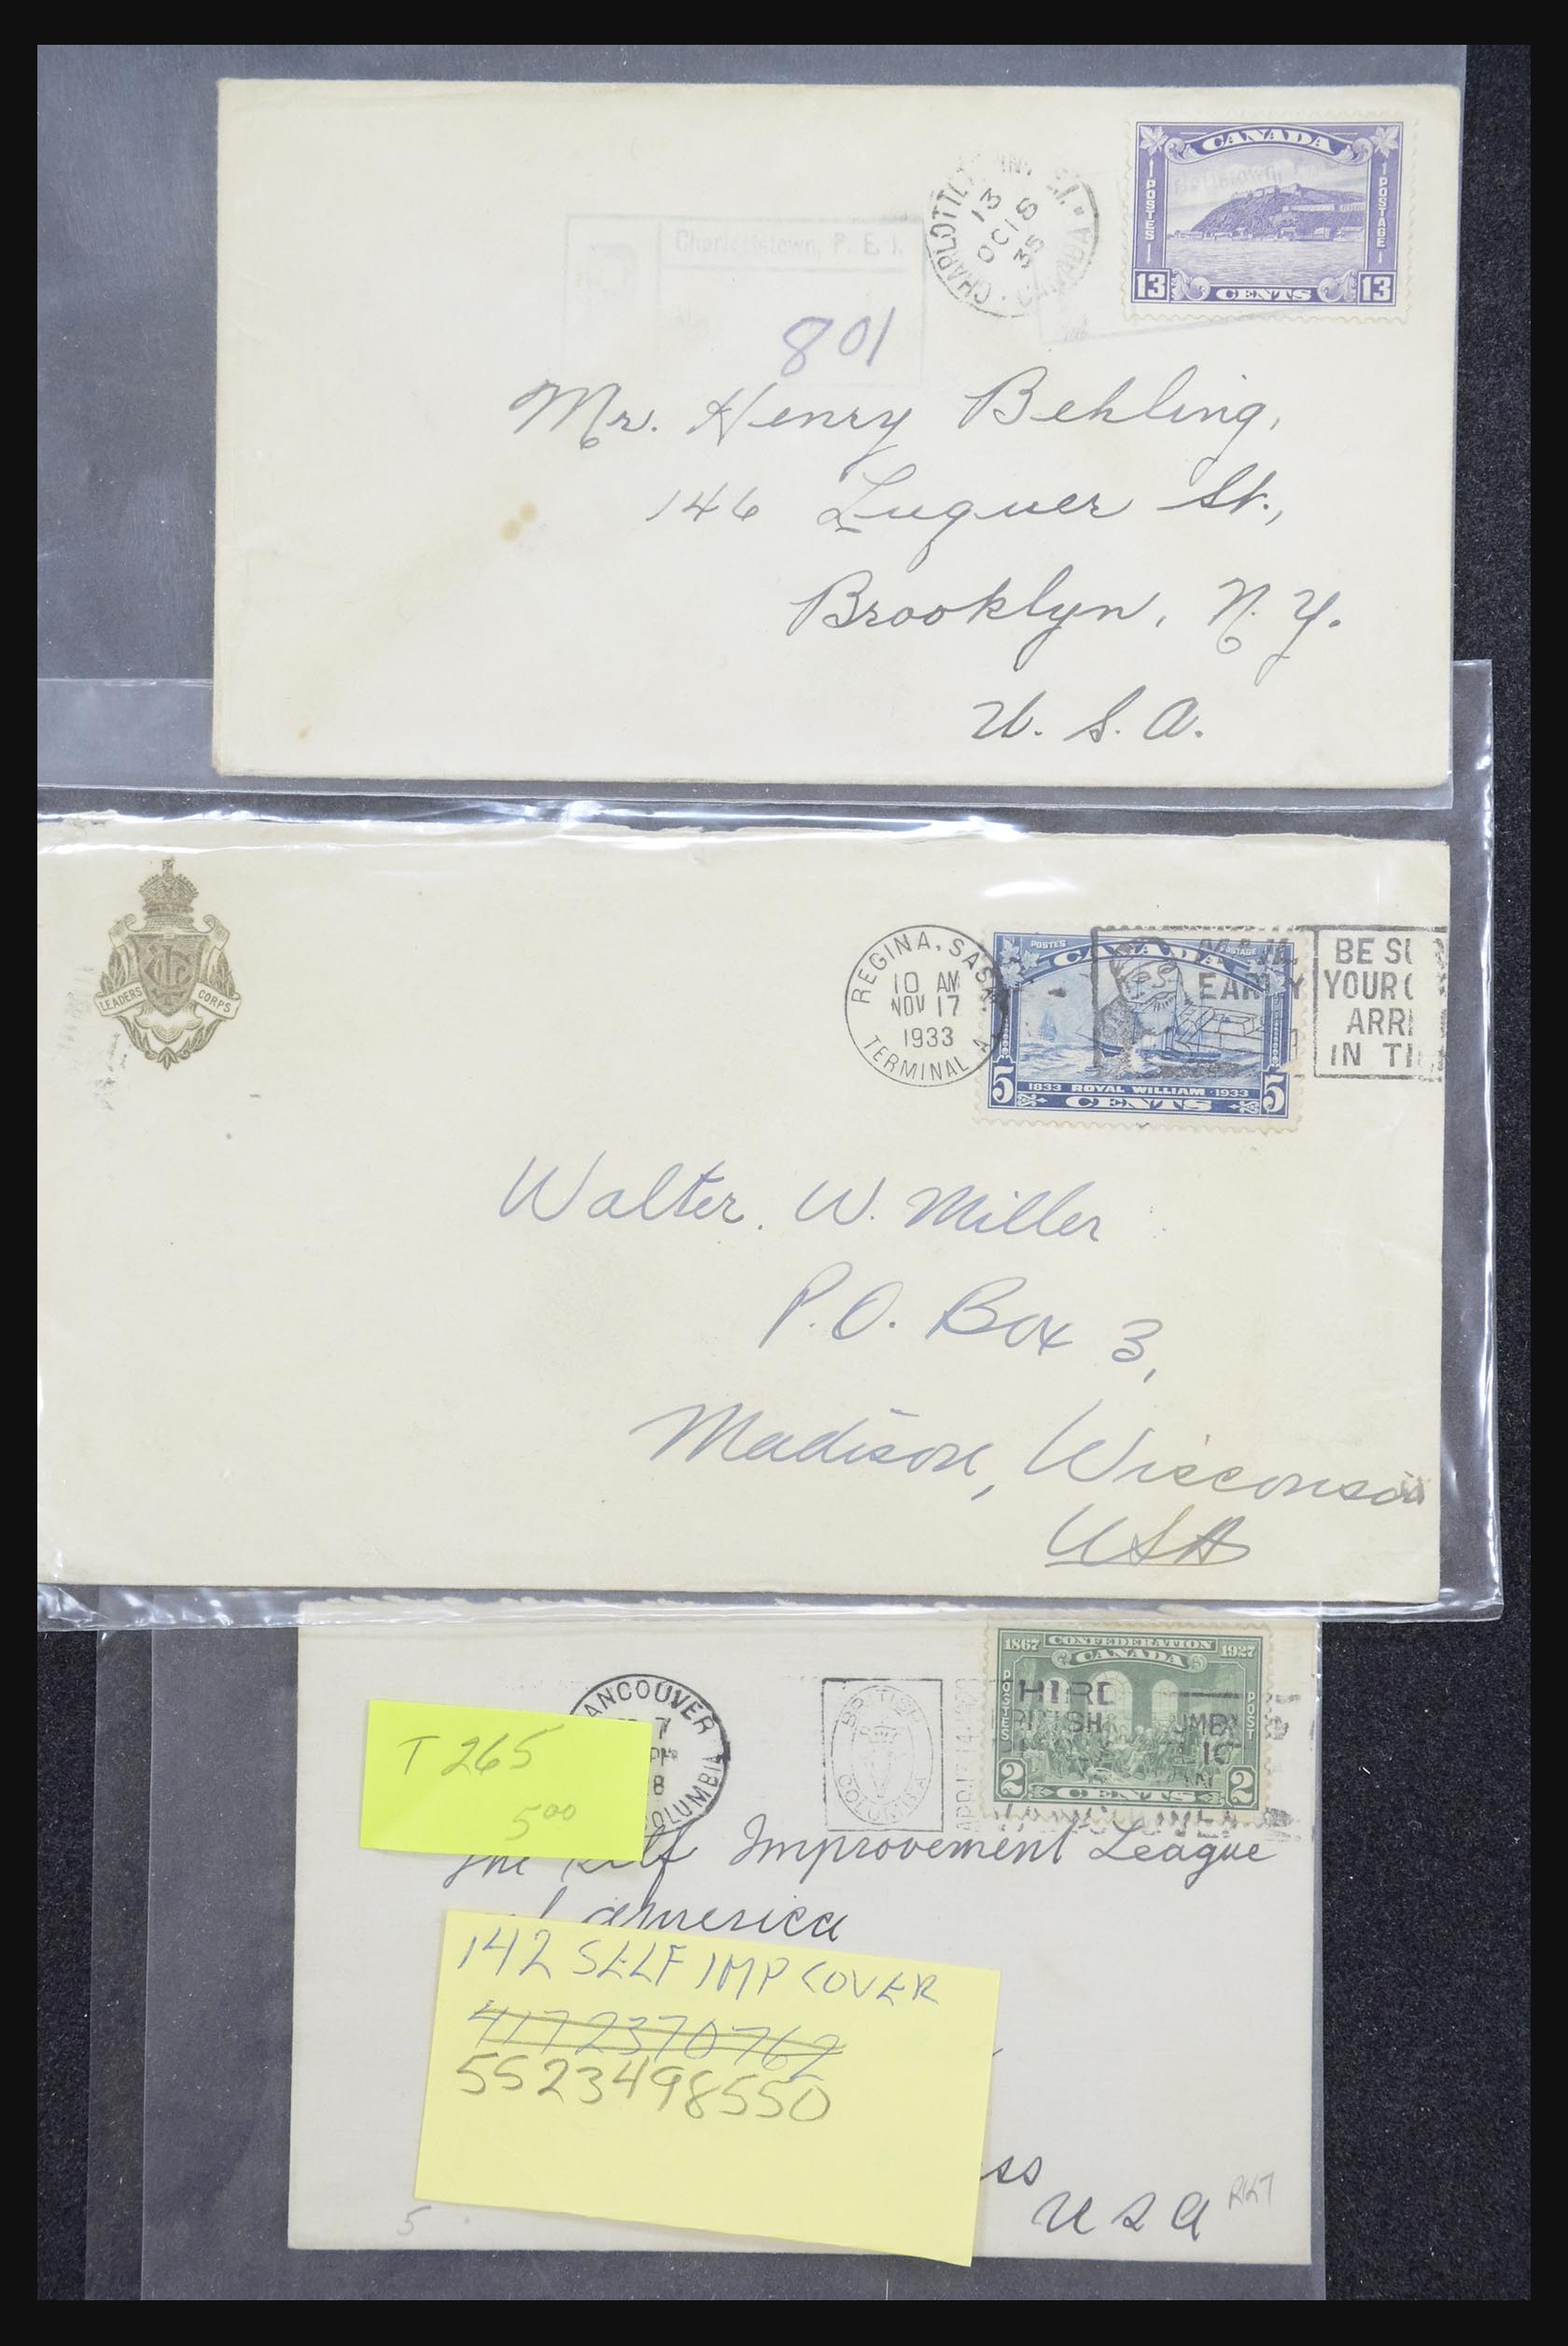 CANADA
POSTES
POSTAGE
13 CENTS 13
13
OC 18
35
CANADA
Charlottetown, P. E. I.
801
Mr. Henry Behling,
146 Luquer St.,
Brooklyn, N. Y.
U. S. A.
LEADERS CORPS
REGINA, SASK.
10 AM
NOV 17
1933
TERMINAL A
POSTES CANADA POSTAGE
1833 ROYAL WILLIAM 1933
5 CENTS 5
EARLY
BE SU
YOUR
ARRI
IN TI
Walter W. Miller
P.O. Box 3,
Madison, Wisconsin
USA
ANCOUVER
7
PM
8
COLUMBIA
BRITISH
COLUMBIA
APR.13.14.1928
1867 CONFEDERATION 1927
CANADA
POSTES
POST
2 CENTS 2
HIRD
T 265
500
The Self Improvement League
of America
142 SELF IMP COVER
4172370762
5523498550
ss
USA
RK7
5